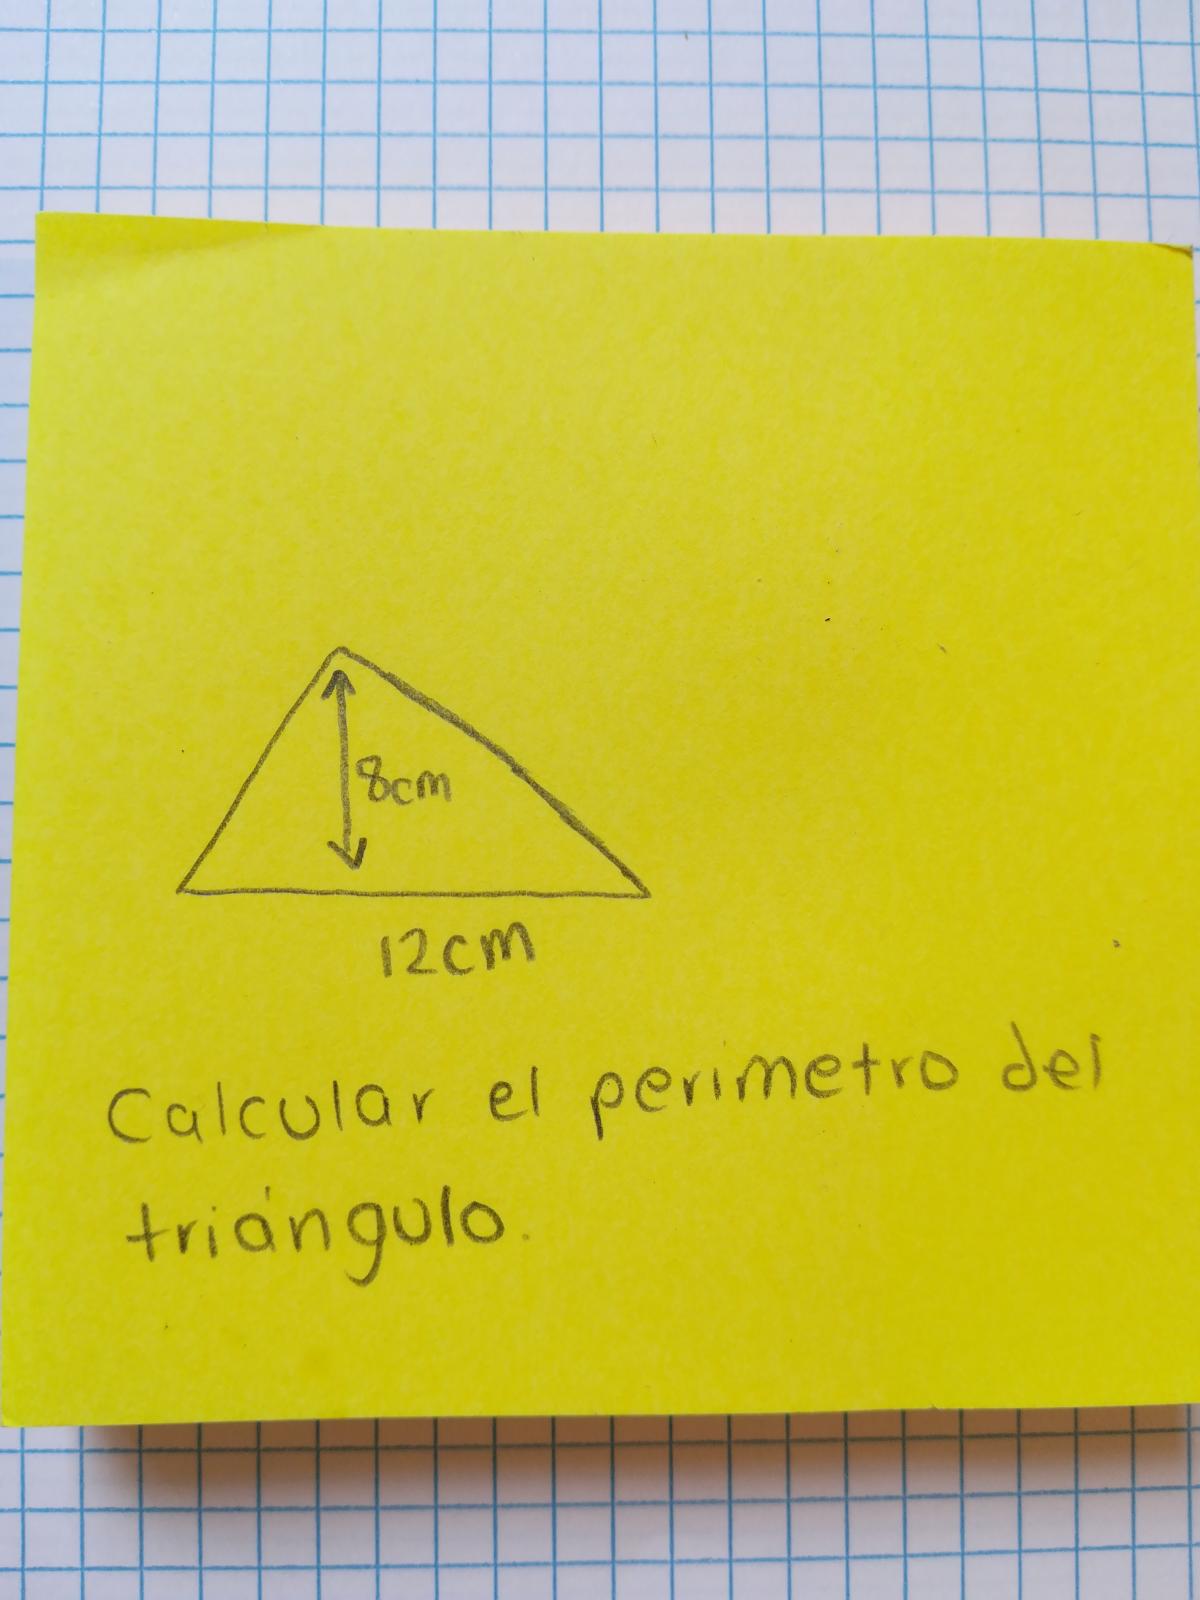 8cm
12cm
Calcular el perimetro del
triángulo.